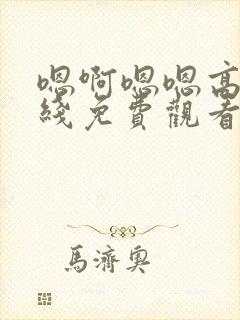 嗯啊嗯嗯高
綫免費觀看
馬濟奧